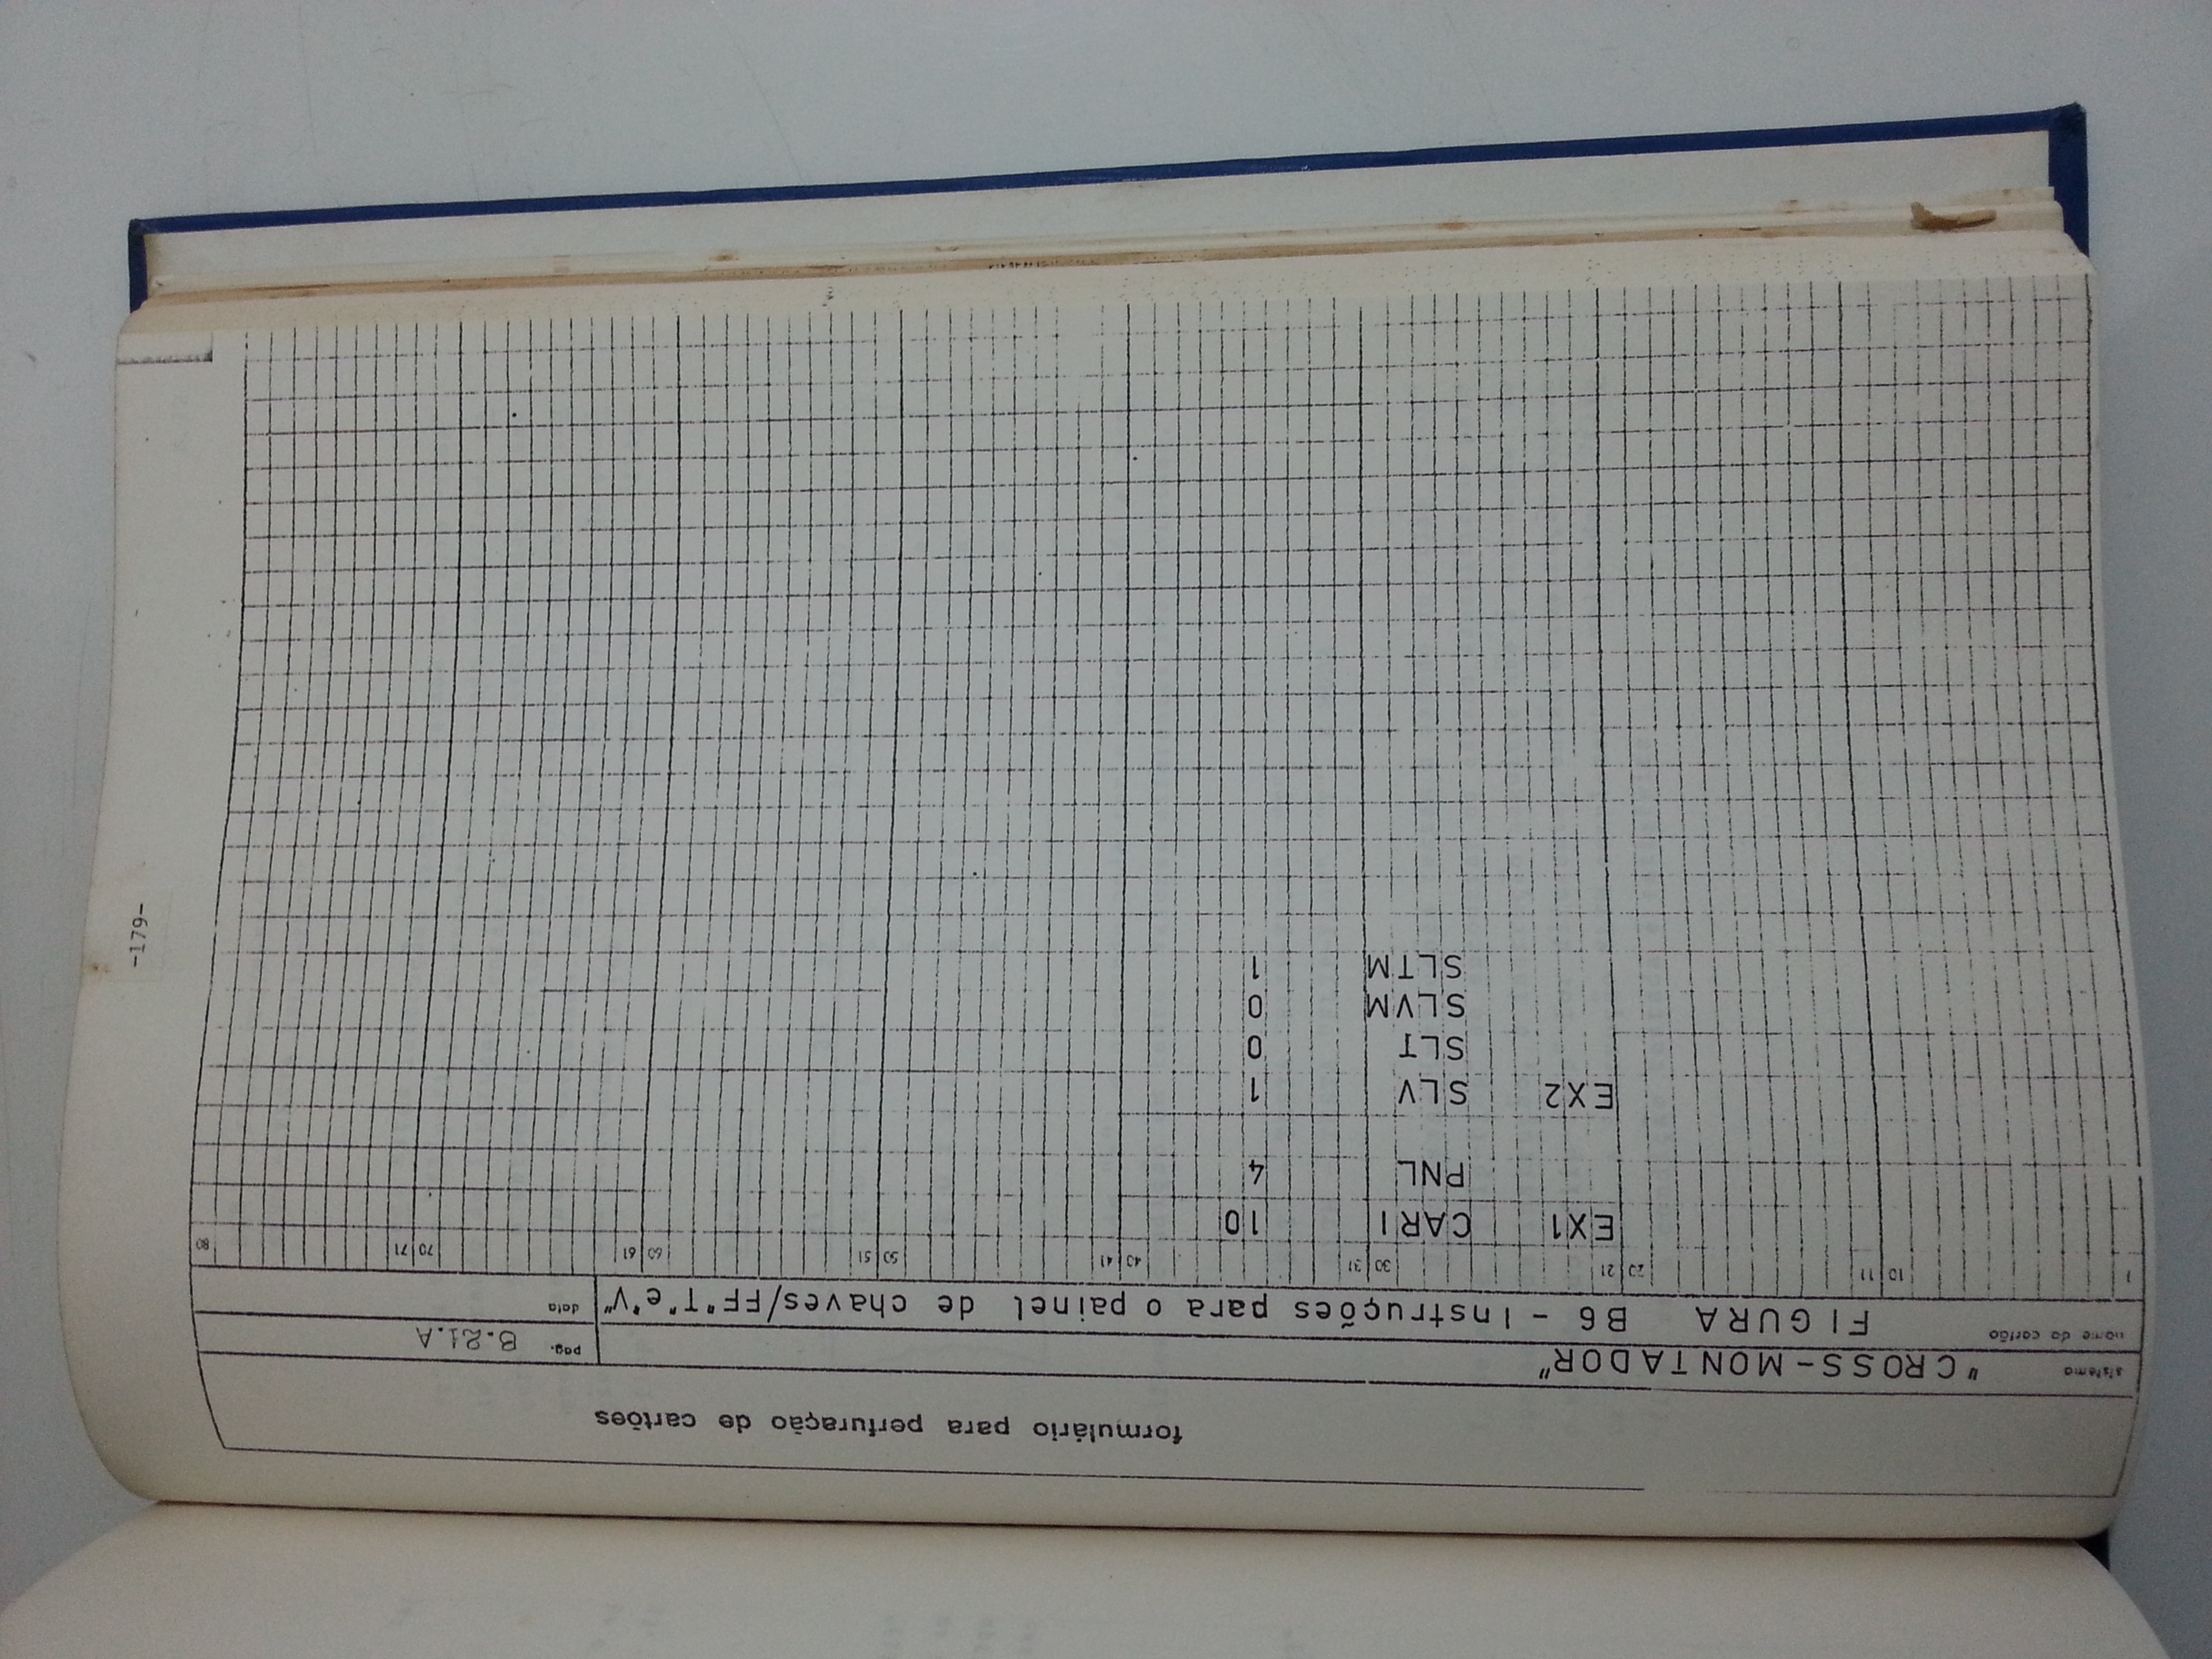 -179-
formulário para perfuração de cartões
sistema "CROSS-MONTADOR"
pag. B.21.A
nome do cartão FIGURA B6 - Instruções para o painel de chaves/FF"T"e"V"
data
1 10 11 20 21 30 31 40 41 50 51 60 61 70 71 80
EX1 CARI 10
PNL 4
EX2 SLV 1
SLT 0
SLVM 0
SLTM 1